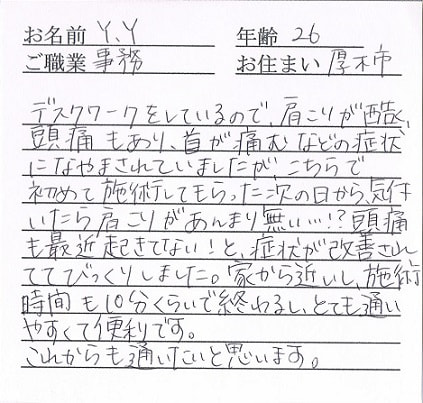 お名前 Y.Y 年齢 26
ご職業 事務 お住まい 厚木市
デスクワークをしているので、肩こりが酷く、
頭痛もあり、首が痛むなどの症状
になやまされていましたが、こちらで
初めて施術してもらった次の日から、気付
いたら肩こりがあんまり無い…!?頭痛
も最近起きてない!と、症状が改善され
ててびっくりしました。家から近いし、施術
時間も10分くらいで終わるし、とても通い
やすくて便利です。
これからも通いたいと思います。